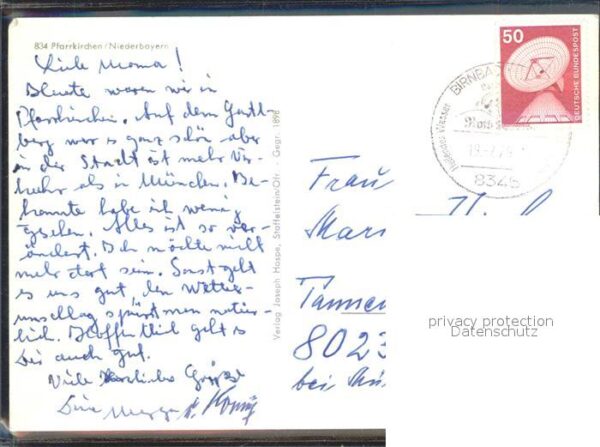 834 Pfarrkirchen/Niederbayern
Liebe Mama!
Heute waren wir in
Pfarrkirchen. Auf dem Gartl-
berg war es ganz schön aber
in der Stadt ist mehr Ver-
kehr als in München. Be-
kannte habe ich wenig
gesehen. Alles ist so ver-
ändert. Ich möchte nicht
mehr dort sein. Sonst geht
es uns gut, den Wetter-
umschlag spürt man natür-
lich. Hoffentlich geht es
Dir auch gut.
Viele herzliche Grüsse
Verlag Joseph Hospe, Staffelstein/Ofr. - Gegr. 1898
50
DEUTSCHE BUNDESPOST
BIRNBA
8345
Frau
Mar
Tannen
8023
bei Mü
privacy protection
Datenschutz